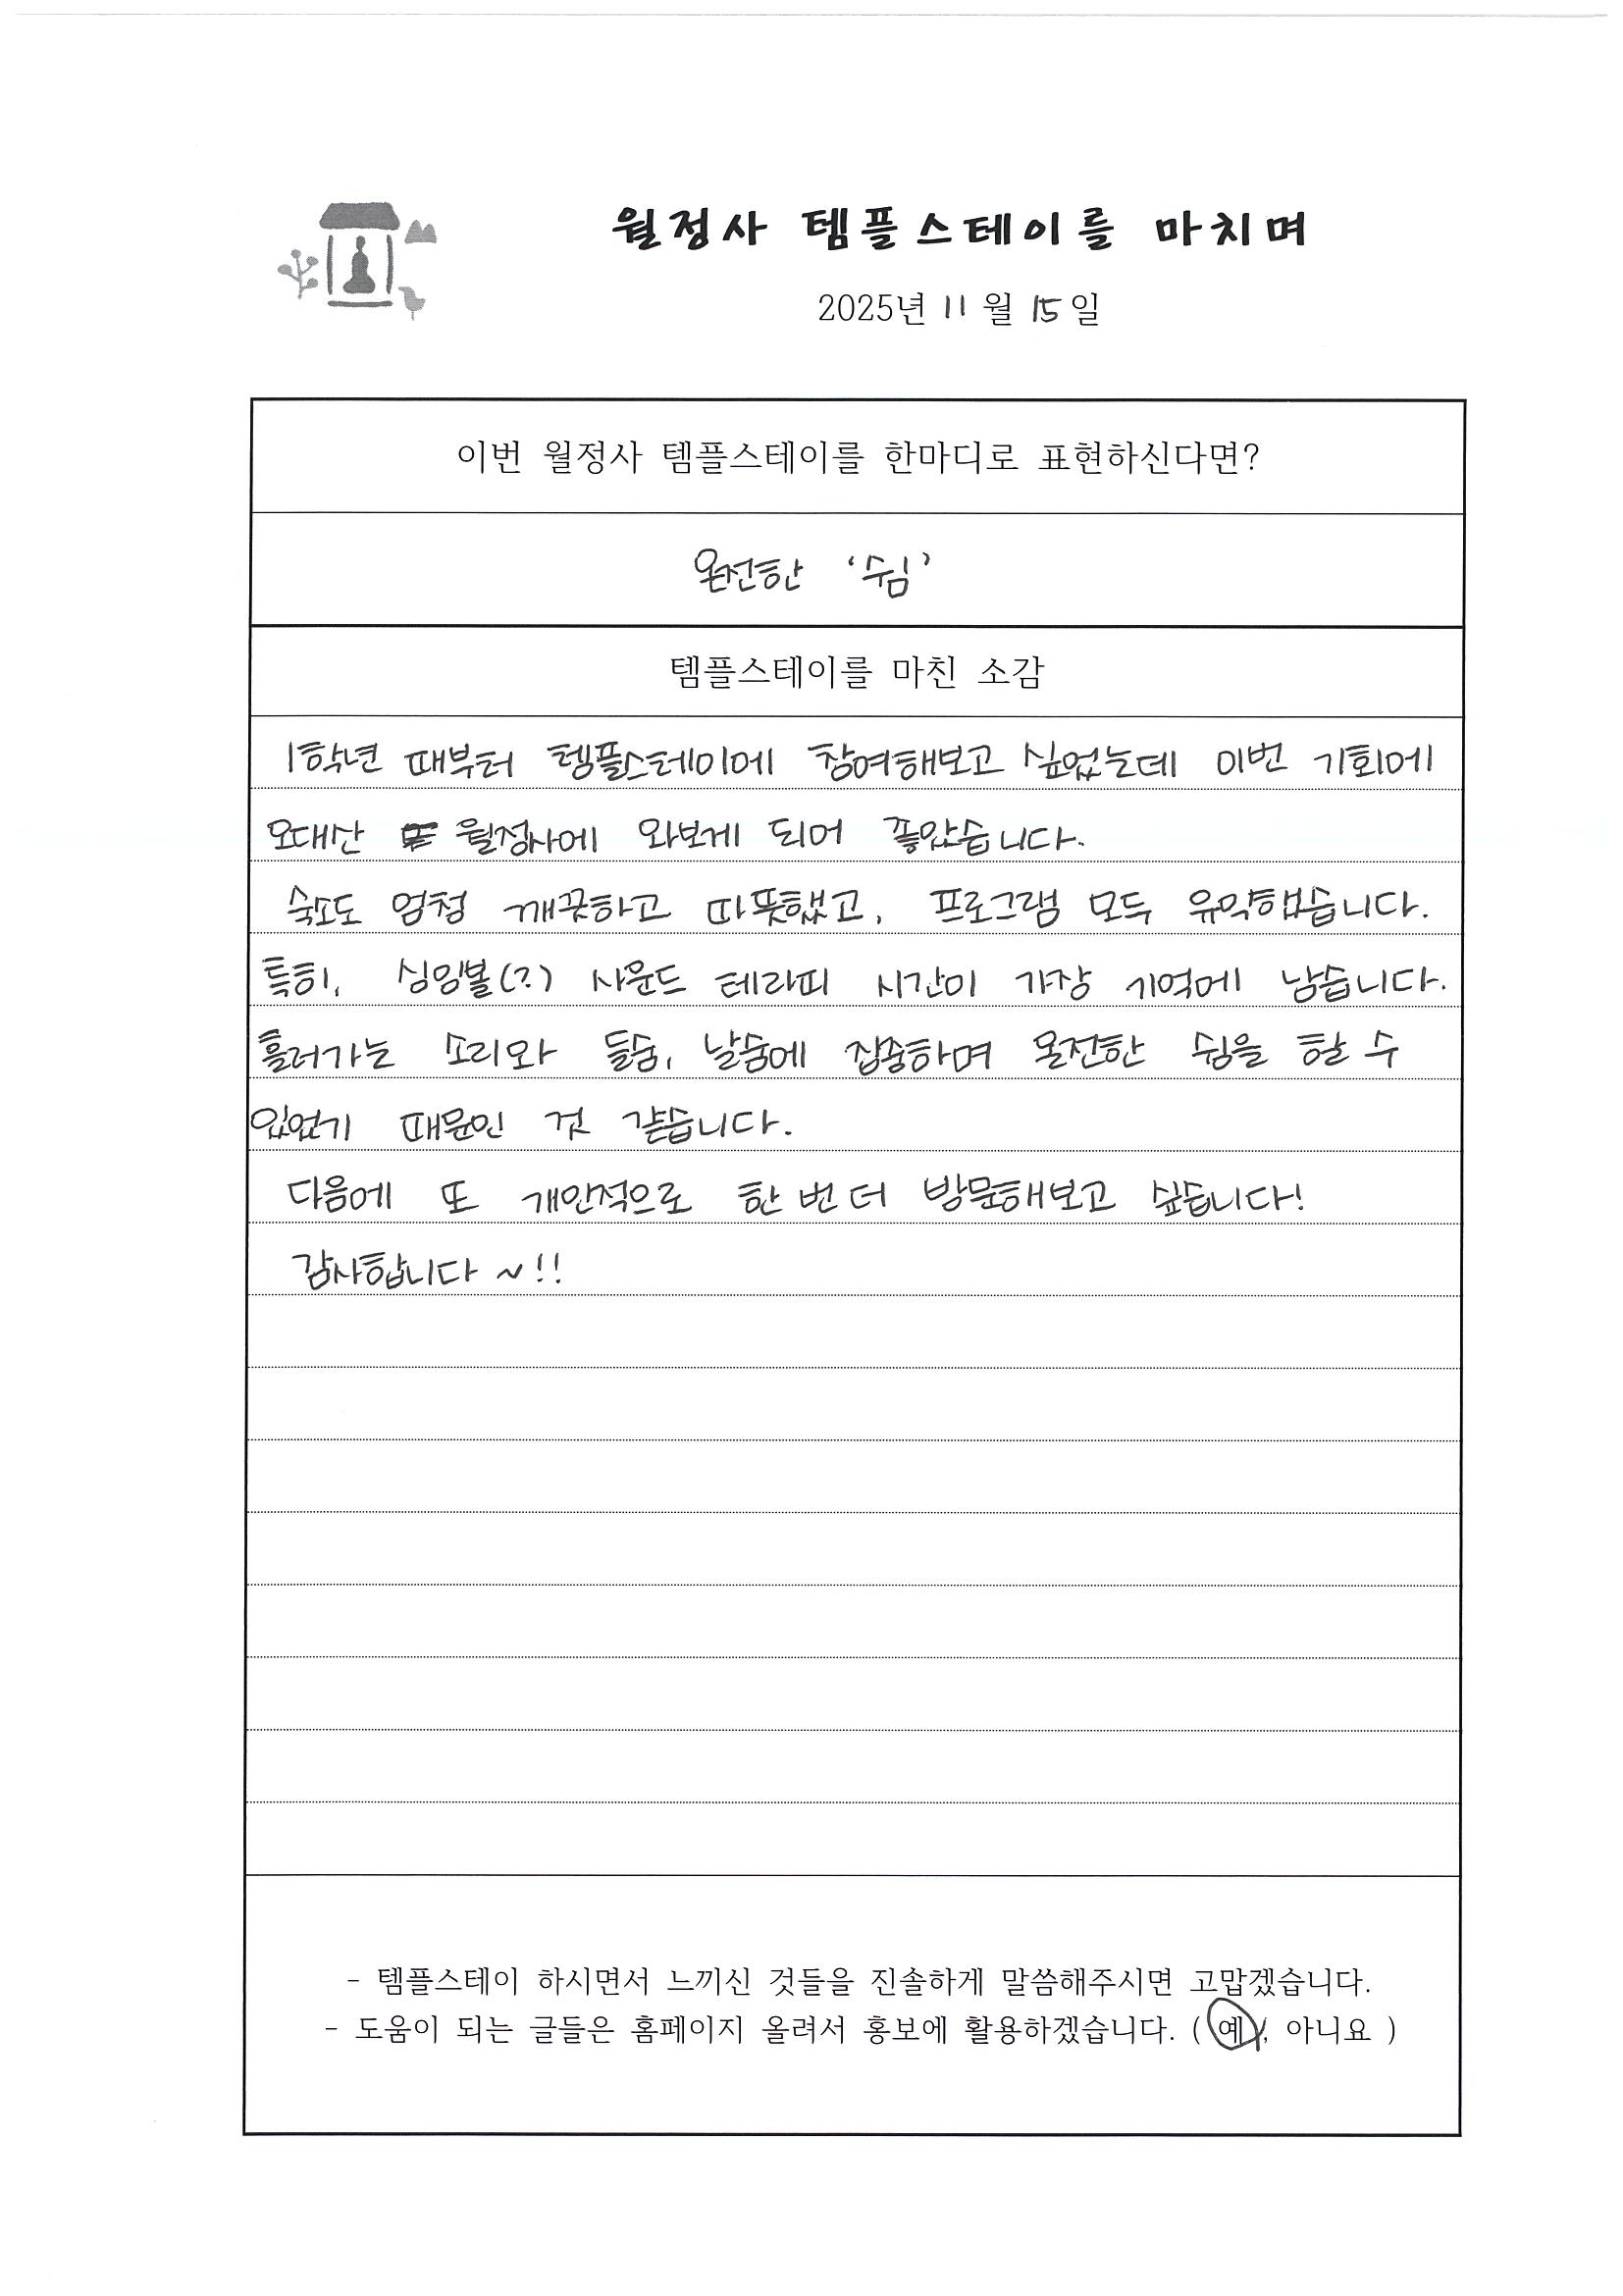 월정사 템플스테이를 마치며
2025년 11월 15일
이번 월정사 템플스테이를 한마디로 표현하신다면?
온전한 '쉼'
템플스테이를 마친 소감
1학년 때부터 템플스테이에 참여해보고 싶었는데 이번 기회에
오대산 월정사에 와보게 되어 좋았습니다.
숙소도 엄청 깨끗하고 따뜻했고, 프로그램 모두 유익했습니다.
특히, 싱잉볼(?) 사운드 테라피 시간이 가장 기억에 남습니다.
흘러가는 소리와 들숨, 날숨에 집중하며 온전한 쉼을 할 수
있었기 때문인 것 같습니다.
다음에 또 개인적으로 한 번 더 방문해보고 싶습니다!
감사합니다 ~!!
- 템플스테이 하시면서 느끼신 것들을 진솔하게 말씀해주시면 고맙겠습니다.
- 도움이 되는 글들은 홈페이지 올려서 홍보에 활용하겠습니다. ( 예 , 아니요 )